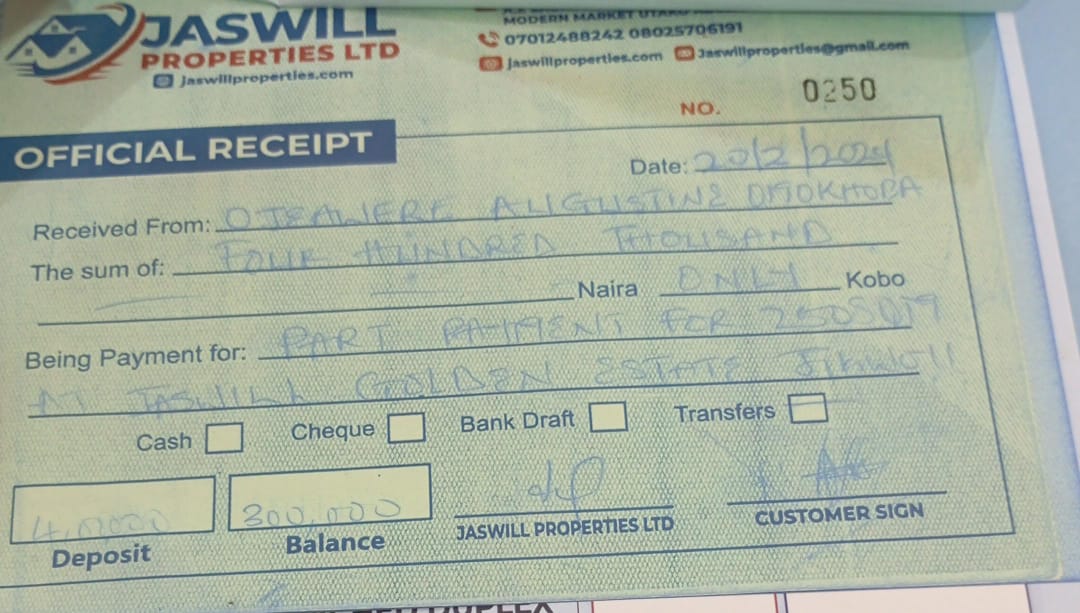 JASWILL
PROPERTIES LTD
Jaswillproperties.com
MODERN MARKET UTAKO
07012488242 08025706191
jaswillproperties.com Jaswillproperties@gmail.com
NO. 0250
OFFICIAL RECEIPT
Date: 20/2/2024
Received From: OJEAWERE AUGUSTINE OMOKHOBA
The sum of: FOUR HUNDRED THOUSAND
Naira ONLY Kobo
Being Payment for: PART PAYMENT FOR 250SQM
AT JASWILL GOLDEN ESTATE
Cash Cheque Bank Draft Transfers
300,000
Deposit Balance JASWILL PROPERTIES LTD CUSTOMER SIGN